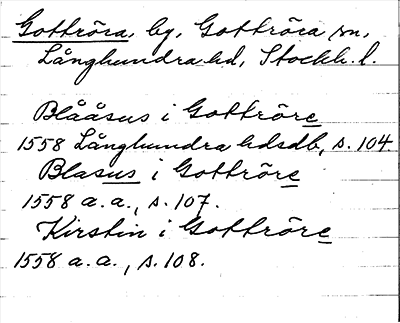 Gottröra, by, Gottröra sn,
Långhundra hd, Stockh. l.
Blååsus i Gottröre
1558 Långhundra hdsdb, s. 104
Blasus i Gottröre
1558 a. a., s. 107.
Kirstin i Gottröre
1558 a. a., s. 108.